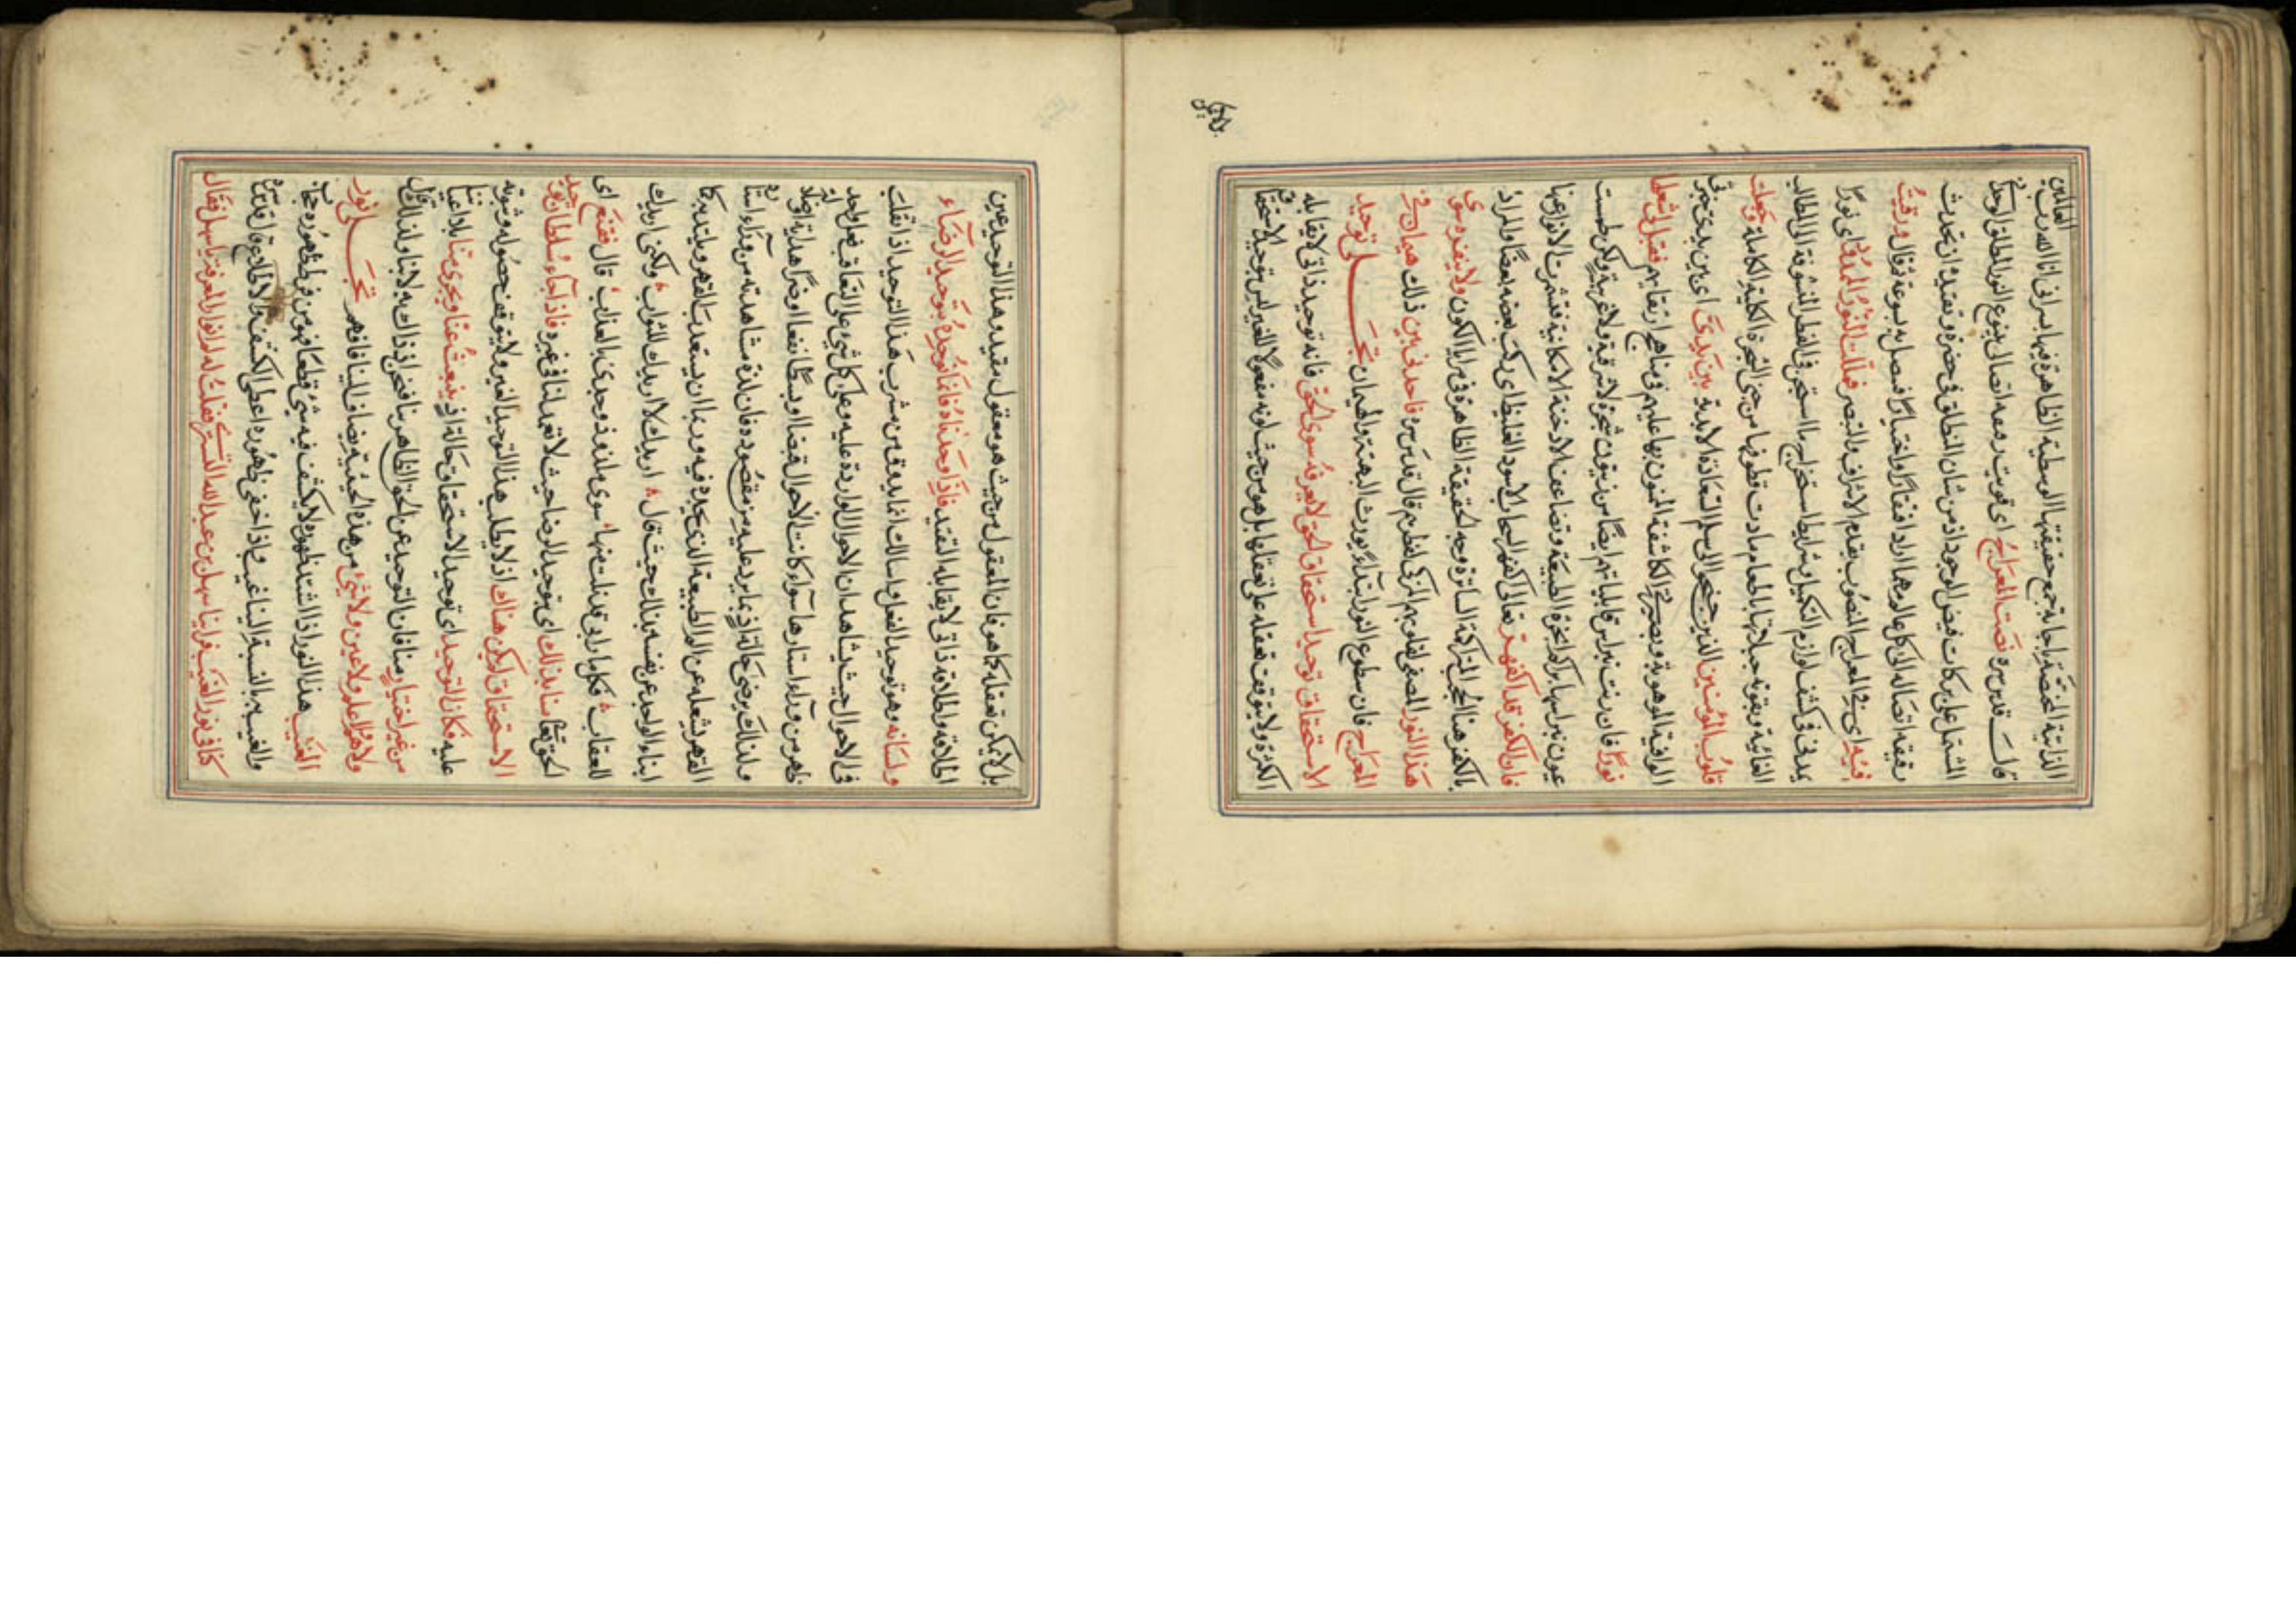 الذاتية المختصة بإحاطة جمع حقيقتها الوسطية الظاهرة فيها بسر إني أنا الله رب العالمين
قال قدس سره نصت المعراج أى قويت رقيقة اتصالى بينبوع النور المطلق الوحدانى
المشتمل على بركات فيض الوجود اذ من شان المطلق فى حضرة وتقيده ان تحدث
رقيقة اتصاله الى كل عال وهما اراد افتقارًا واختيارًا فيصل به بسرعة فقال ورقيت
فيه اى فى المعراج المنصوب بقدم الاشراف والتبصر فملكت النور الممدود اى نورًا
يمدنى فى كشف لوازم التكميل وشرايط استخراج ما استجن فى الفطر المتشوقة الى المطالب
الغائية وجعلت
قلوب المؤمنين الذين جنحوا الى سلم السعادة الابدية بين يدى اى بين يدى تحيرى
الوافية الموهوبة وبصيرتى الكاشفة المنون بها عليهم فى مناهج ارتقايهم فقيل لى اشعلها
نورًا فان زيت نبراس قابلياتهم ايضًا من زيتون شجرة لا شرقية ولا غربية ولكن طمست
عيون نبراسها بتراكم ابخرة الطبيعة وتصاعدت الادخنة الامكانية فقشرت الانوار عنها
فان الكفر قد اكفهر تعالى اكفهر السحاب الاسود الغليظ اى ركب بعضه بعضًا والمراد
بالكفر هنا الحجب المتراكمة الساترة وجه الحقيقة الظاهرة فى مرايا الكون ولا ينفره سوى
هذا النور المصفى لقلوبهم المزكى لفطرهم قال قدس سره فاخذنى بين ذلك هيمان فى
المعراج فان سطوع النور ابتداءً يورث البهتة والهيمان تجلى توحيد
الاستحقاق توحيد استحقاق الحق لا يعرفه سوى الحق فانه توحيد ذاتى لا يقابله
الكثرة ولا يتوقف تعقله على تعقلها بل هو من حيث كونه مفعولا للغير ليس بتوحيد الاستحقاق
بل لا يمكن تعقله كما هو فان المعقول من حيث هو معقول مقيد وهذا التوحيد عين
اطلاقه واطلاقه ذاتى لا يقابله التقييد فاذا وحدناه فانما نوحده بتوحيد الرضاء
ولسانه وهو توحيد الفعل واسالك انما يذوق من مشرب هذا التوحيد اذ اتقلبت
فى الاحوال بحيث يشاهد ان الاحوال الواردة عليه وعلى كل شئ على التعاقب فعل واحد
ظهر من وراء استارها سواء كانت الاحوال قبضا او بسطًا نفعا او ضرًا هداية او ضلالة
ولذلك يرضى حالتئذ بما يرد عليه من مقصوده فان لذة مشاهدته من وراء استاره
القهر يشغله عن الم الطبيعة الذى يجده فيه وربما ان يستعذب القهر ويلتذ به كما
انباء الواجد عن نفسه بذلك حيث قال، اريدك لا اريدك للثواب، ولكنى اريدك
للعقاب، فكل مآربى قد نلت منها، سوى ملذوذ وجدى بالعذاب، قال فقنع اى
الحق تعالى منا بذلك اى بتوحيد الرضا حيث لا تعبد لنا فى غيره فاذا جاء سلطان توحيد
الاستحقاق لم يكن هناك اذ لا يطلب هذا التوحيد الغير ولا يتوقف حصوله وثبوته
عليه فكان التوحيد اى توحيد الاستحقاق حالتئذ ينبعث عنا ويجرى بنا بلا داعيتنا
من غير اختيار منا فان التوحيد عين الحق الظاهر بنا فنحن اذ ذاك به لا بنا ولذلك قال
ولا هم ولا علم ولا عين ولا شئ من هذه الحيثية يضاف الينا فافهم تجلى نور
الغيب هذا النور اذا اشتد ظهوره لا يكشف فيه شئ قطعًا فهو من فرط ظهوره حجاب
والغيب به بالنسبة الينا غيب واذا خفى ظهوره اعطى الكشف والاطلاع قال قدس سره
كنا فى نور الغيب فراينا سهل بن عبد الله التسترى فقلت له كم انوار المعرفة يا سهل فقال